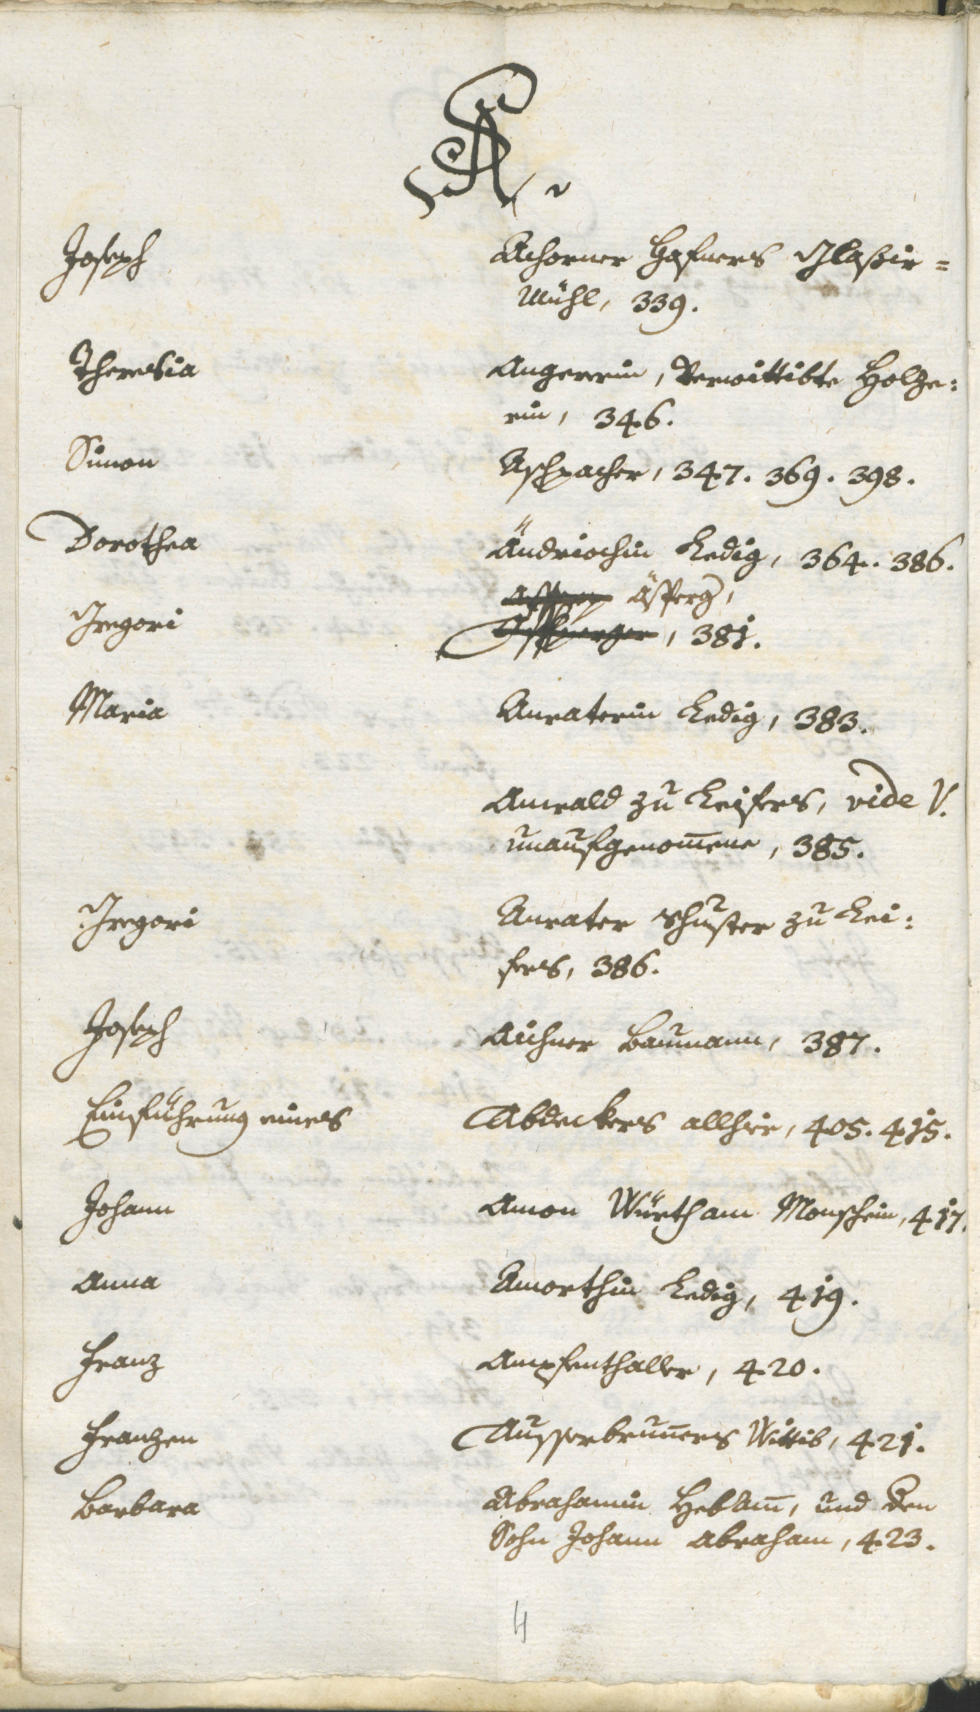 A.
Joseph Achorner Hafners Glasier=
Mühl, 339.
Theresia Angererin, Verwittibte Holze:
rin, 346.
Simon Aschpacher, 347. 369. 398.
Dorothea Ändriochin Ledig, 364. 386.
Äsperg,
Gregori 381.
Maria Anraterin Ledig, 383.
Anwald zu Leifers, vide V.
unaufgenom̄ene, 385.
Gregori Anrater Schuster zu Lei:
fers, 386.
Joseph Aichner Baumann, 387.
Einführung eines Abdeckers allhier, 405. 415.
Johann Amon Würth am Monschein, 417.
Anna Amorthin Ledig, 419.
Franz Ampfenthaller, 420.
Franzen Ausserbrun̄ers Wittib, 421.
Barbara Abrahamin Hebam̄, und den
Sohn Johann Abraham, 423.
4